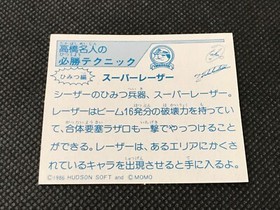 高橋名人の
必勝テクニック
ひみつ編
スーパーレーザー
シーザーのひみつ兵器、スーパーレーザー。
レーザーはビーム16発分の破壊力を持ってい
て、合体要塞ラザロも一撃でやっつけること
ができる。レーザーは、あるエリアにかくさ
れているキャラを出現させると手に入るよ。
©1986 HUDSON SOFT and ©MOMO